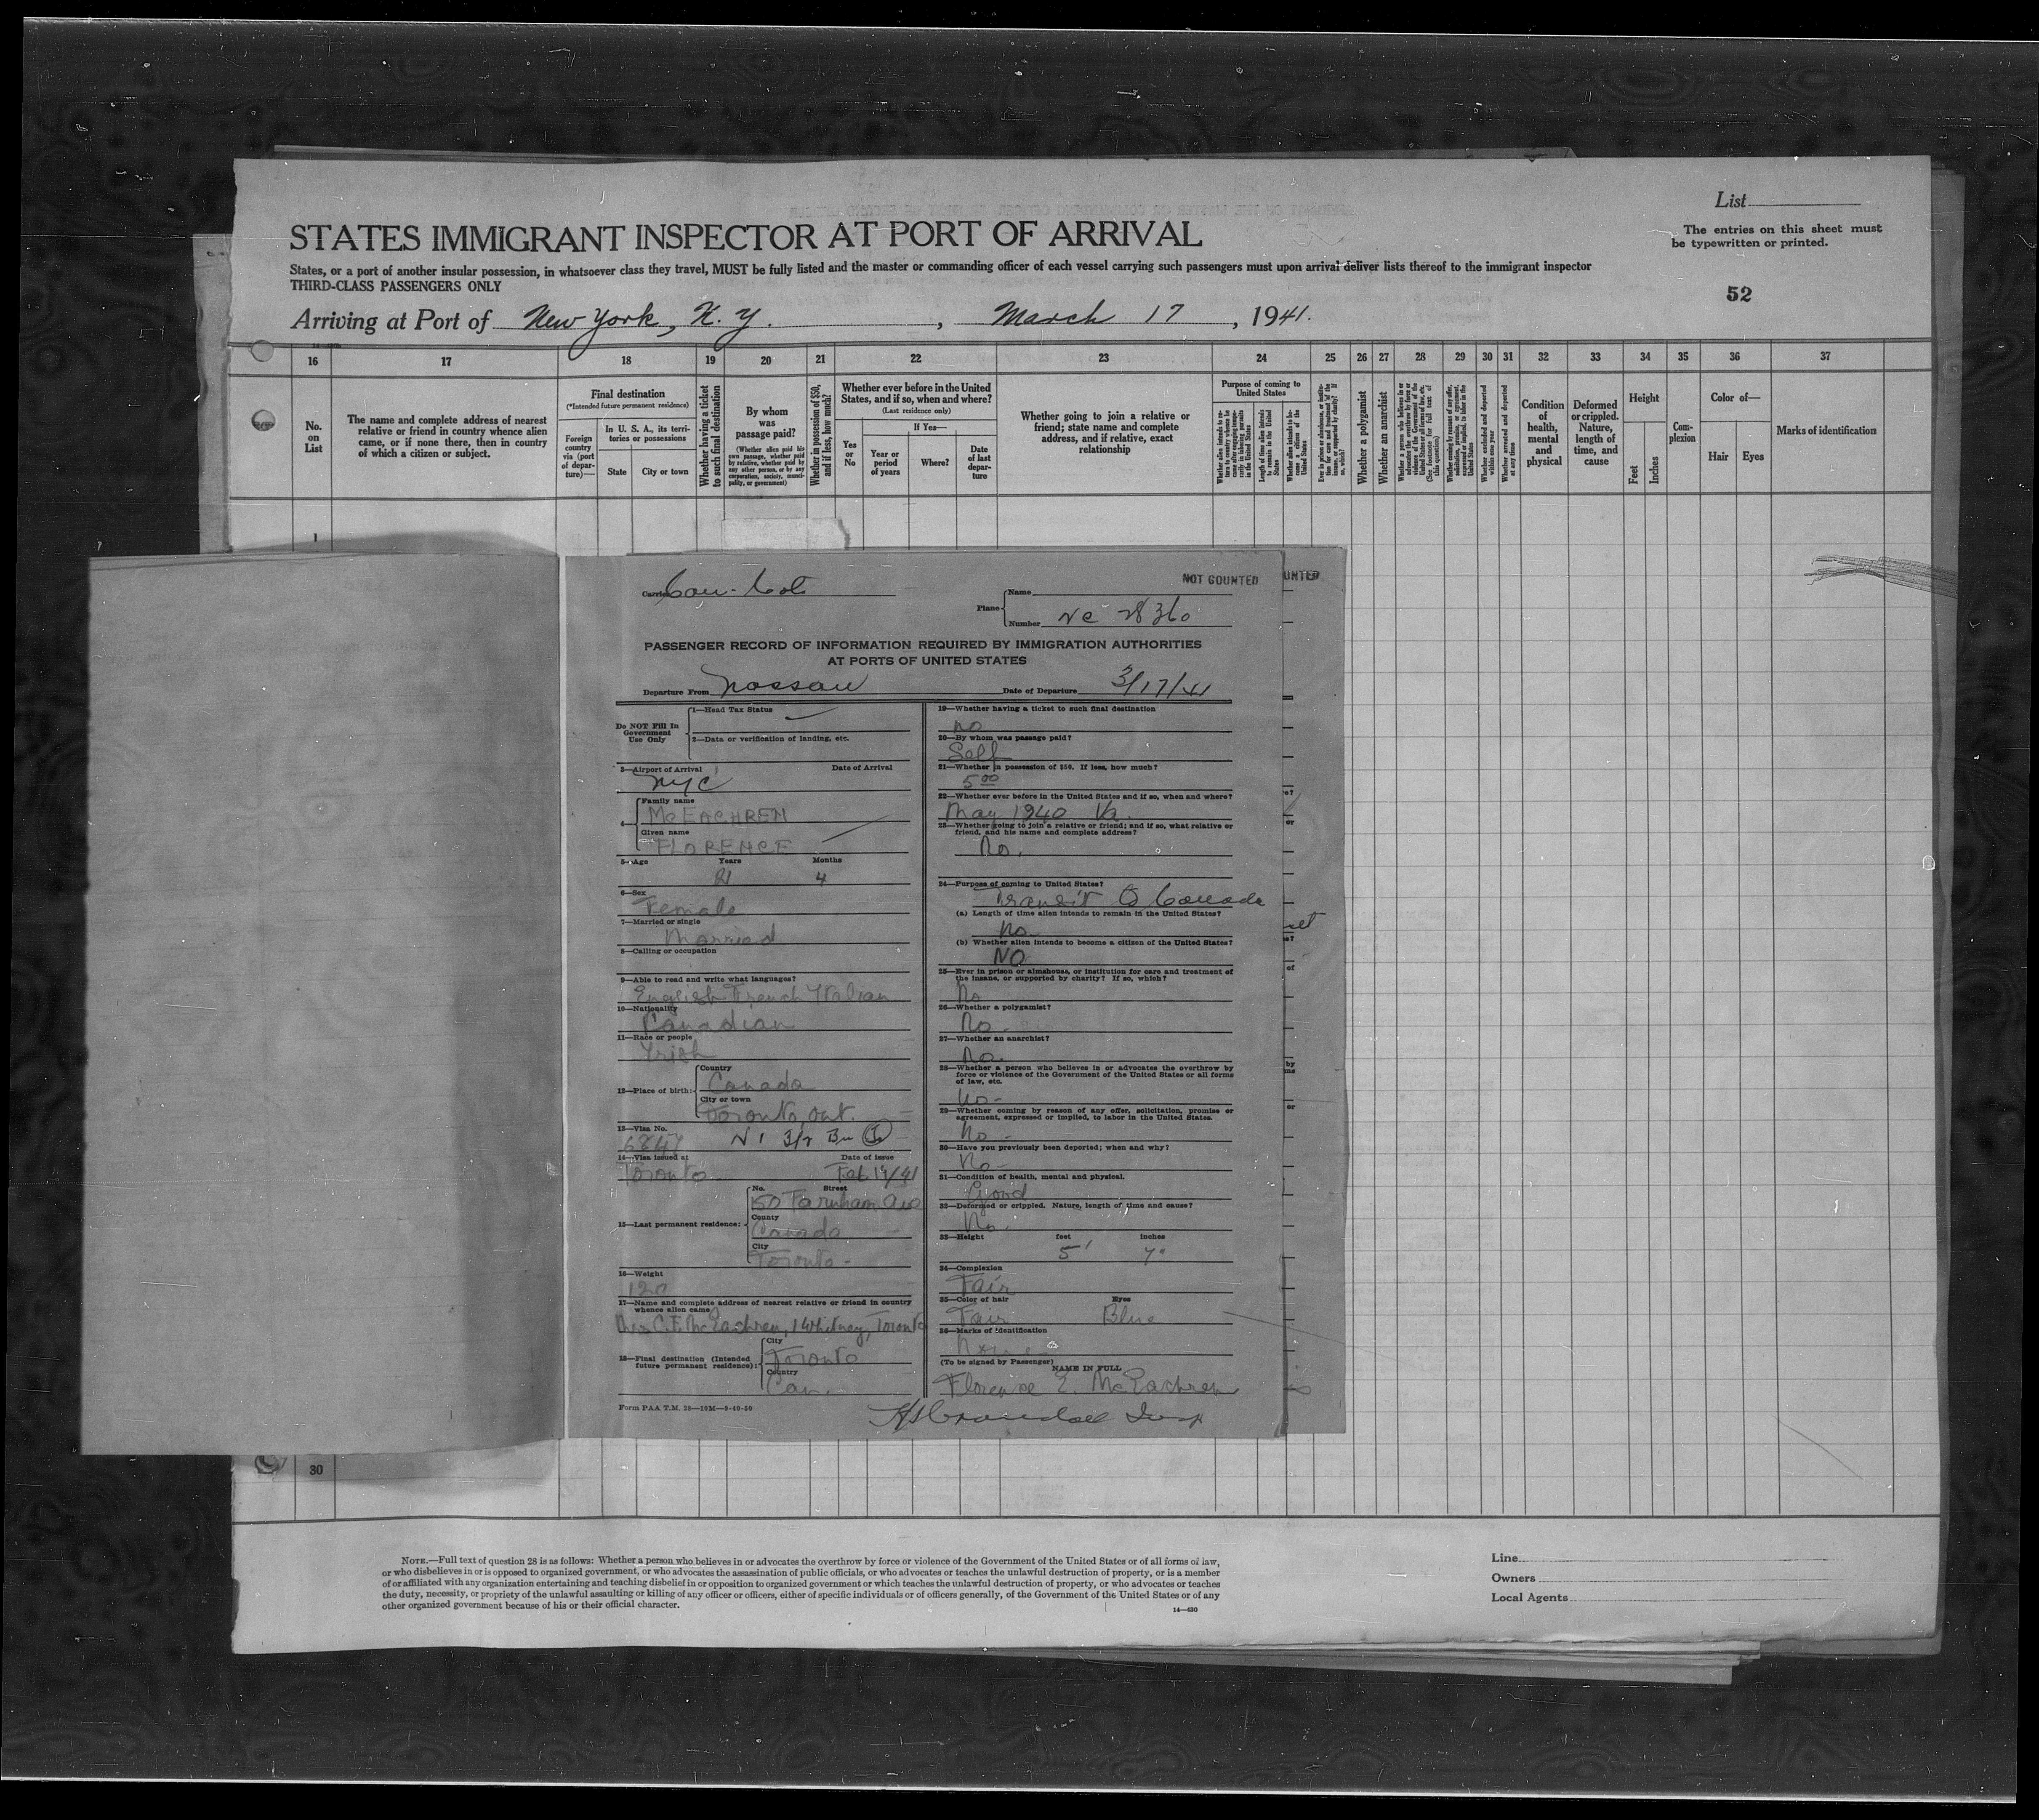 List
STATES IMMIGRANT INSPECTOR AT PORT OF ARRIVAL
The entries on this sheet must
be typewritten or printed.
States, or a port of another insular possession, in whatsoever class they travel, MUST be fully listed and the master or commanding officer of each vessel carrying such passengers must upon arrival deliver lists thereof to the immigrant inspector
THIRD-CLASS PASSENGERS ONLY
52
Arriving at Port of New York, N.Y. , March 17 , 1941.
16 17 18 19 20 21 22 23 24 25 26 27 28 29 30 31 32 33 34 35 36 37
No.
on
List
The name and complete address of nearest
relative or friend in country whence alien
came, or if none there, then in country
of which a citizen or subject.
Final destination
(*Intended future permanent residence)
Foreign
country
via (port
of depar-
ture)—
In U. S. A., its terri-
tories or possessions
State
City or town
Whether having a ticket
to such final destination
By whom
was
passage paid?
(Whether alien paid his
own passage, whether paid
by relative, whether paid by
any other person, or by any
corporation, society, munici-
pality, or government)
Whether in possession of $50,
and if less, how much?
Whether ever before in the United
States, and if so, when and where?
(Last residence only)
Yes
or
No
If Yes—
Year or
period
of years
Where?
Date
of last
depar-
ture
Whether going to join a relative or
friend; state name and complete
address, and if relative, exact
relationship
Purpose of coming to
United States
Whether alien intends to re-
turn to country whence he
came after engaging tempo-
rarily in laboring pursuits
in the United States
Length of time alien intends
to remain in the United
States
Whether alien intends to be-
come a citizen of the
United States
Whether a polygamist
Whether an anarchist
Condition
of
health,
mental
and
physical
Deformed
or crippled.
Nature,
length of
time, and
cause
Height
Feet
Inches
Com-
plexion
Color of—
Hair
Eyes
Marks of identification
1
NOT COUNTED
UNTED
Carrier
Plane
Name
Number NC 28360
PASSENGER RECORD OF INFORMATION REQUIRED BY IMMIGRATION AUTHORITIES
AT PORTS OF UNITED STATES
Departure From Nassau Date of Departure 3/17/41
Do NOT Fill In
Government
Use Only
1—Head Tax Status
2—Data or verification of landing, etc.
3—Airport of Arrival Date of Arrival
NYC
4—
Family name
McEACHREN
Given name
FLORENCE
5—Age Years Months
21 4
6—Sex
Female
7—Married or single
Married
8—Calling or occupation
9—Able to read and write what languages?
English French Italian
10—Nationality
Canadian
11—Race or people
Irish
12—Place of birth:
Country
Canada
City or town
Toronto, Ont.
13—Visa No.
14—Visa issued at Date of issue
Toronto
15—Last permanent residence:
No. Street
150 Farnham Ave
County
Canada
City
Toronto
16—Weight
120
17—Name and complete address of nearest relative or friend in country
whence alien came
Mrs C. F. McEachren, 1 Whitney, Toronto
18—Final destination (Intended
future permanent residence):
City
Toronto
Country
Can.
Form PAA T.M. 20—10M—9-40-50
19—Whether having a ticket to such final destination
no
20—By whom was passage paid?
Self
21—Whether in possession of $50. If less, how much?
5 00
22—Whether ever before in the United States and if so, when and where?
May 1940 Va.
23—Whether going to join a relative or friend; and if so, what relative or
friend, and his name and complete address?
No.
24—Purpose of coming to United States?
Transit to Canada
(a) Length of time alien intends to remain in the United States?
no
(b) Whether alien intends to become a citizen of the United States?
NO
25—Ever in prison or almshouse, or institution for care and treatment of
the insane, or supported by charity? If so, which?
No
26—Whether a polygamist?
No-
27—Whether an anarchist?
No-
28—Whether a person who believes in or advocates the overthrow by
force or violence of the Government of the United States or all forms
of law, etc.
No-
29—Whether coming by reason of any offer, solicitation, promise or
agreement, expressed or implied, to labor in the United States.
No-
30—Have you previously been deported; when and why?
No-
31—Condition of health, mental and physical.
Good
32—Deformed or crippled. Nature, length of time and cause?
No.
33—Height feet inches
5' 7"
34—Complexion
Fair
35—Color of hair Eyes
Fair Blue
36—Marks of identification
None
(To be signed by Passenger)
NAME IN FULL
Florence E. McEachren
30
NOTE.—Full text of question 28 is as follows: Whether a person who believes in or advocates the overthrow by force or violence of the Government of the United States or of all forms of law,
or who disbelieves in or is opposed to organized government, or who advocates the assassination of public officials, or who advocates or teaches the unlawful destruction of property, or is a member
of or affiliated with any organization entertaining and teaching disbelief in or opposition to organized government or which teaches the unlawful destruction of property, or who advocates or teaches
the duty, necessity, or propriety of the unlawful assaulting or killing of any officer or officers, either of specific individuals or of officers generally, of the Government of the United States or of any
other organized government because of his or their official character.
14—430
Line
Owners
Local Agents